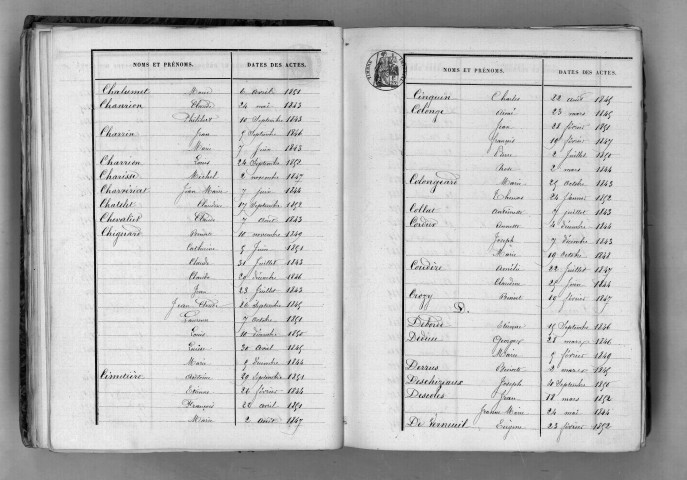 NOMS ET PRÉNOMS. DATES DES ACTES.
Chalumet Marie 6 avril 1851
Chanrion Claude 24 mai 1843
Philibert 10 Septembre 1843
Charrin Jean 9 Septembre 1846
Marie 7 Juin 1843
Charrion Louis 24 Septembre 1852
Michel 2 novembre 1847
Jean Marie 7 Juin 1844
Chatelet Claudine 17 Septembre 1852
Chevalier Claude 7 Août 1843
Chignard 10 novembre 1849
Catherine 5 Juin 1851
Claude 31 Juillet 1843
Claude 29 décembre 1846
Jean 23 Juillet 1843
Jean Claude 26 Septembre 1845
7 octobre 1851
Louis 10 décembre 1850
30 Avril 1845
Marie 9 décembre 1844
Cimetière Antoine 29 Septembre 1851
Etienne 26 février 1844
François 28 avril 1851
Marie 2 Août 1847
NOMS ET PRÉNOMS. DATES DES ACTES.
Cinquin Charles 22 août 1845
Colonge Aimé 23 mars 1845
Jean 28 février 1851
François 19 février 1847
Pierre 2 Juillet 1850
2 mars 1844
Colongeard Marie 25 octobre 1843
Thomas 24 Janvier 1852
Collas Antoinette 7 juillet 1843
Cordier Annette 4 décembre 1844
Joseph 7 décembre 1843
Marie 19 octobre 1848
Coudère Amélie 22 Juillet 1847
Claudine 29 Juin 1844
Crozy Benoit 10 février 1847
D.
Etienne 15 Septembre 1846
Didier Georges 28 mars 1846
Marie 9 février 1849
Derrus Benoite 2 mars 1845
Deschizeaux Joseph 10 Septembre 1850
Descoles Jean 18 mars 1852
Jeanne Marie 24 mai 1844
De Verneuil Eugène 23 février 1852